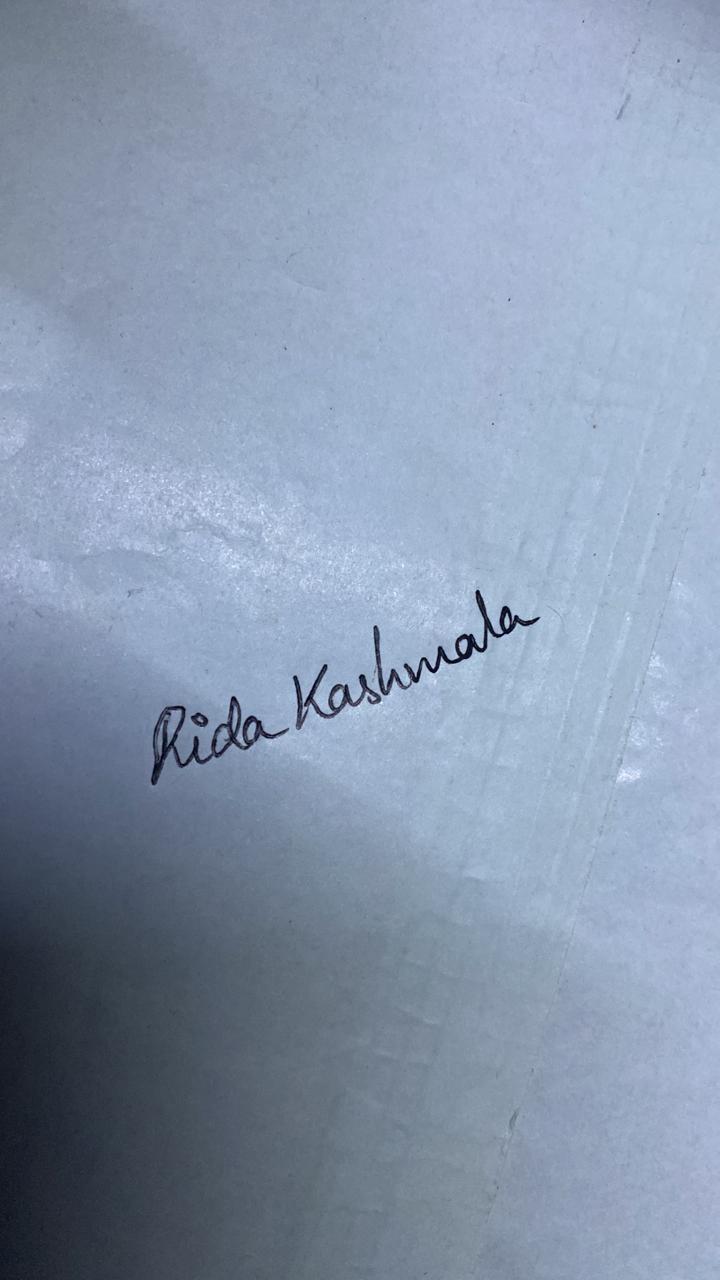 Rida Kashmala